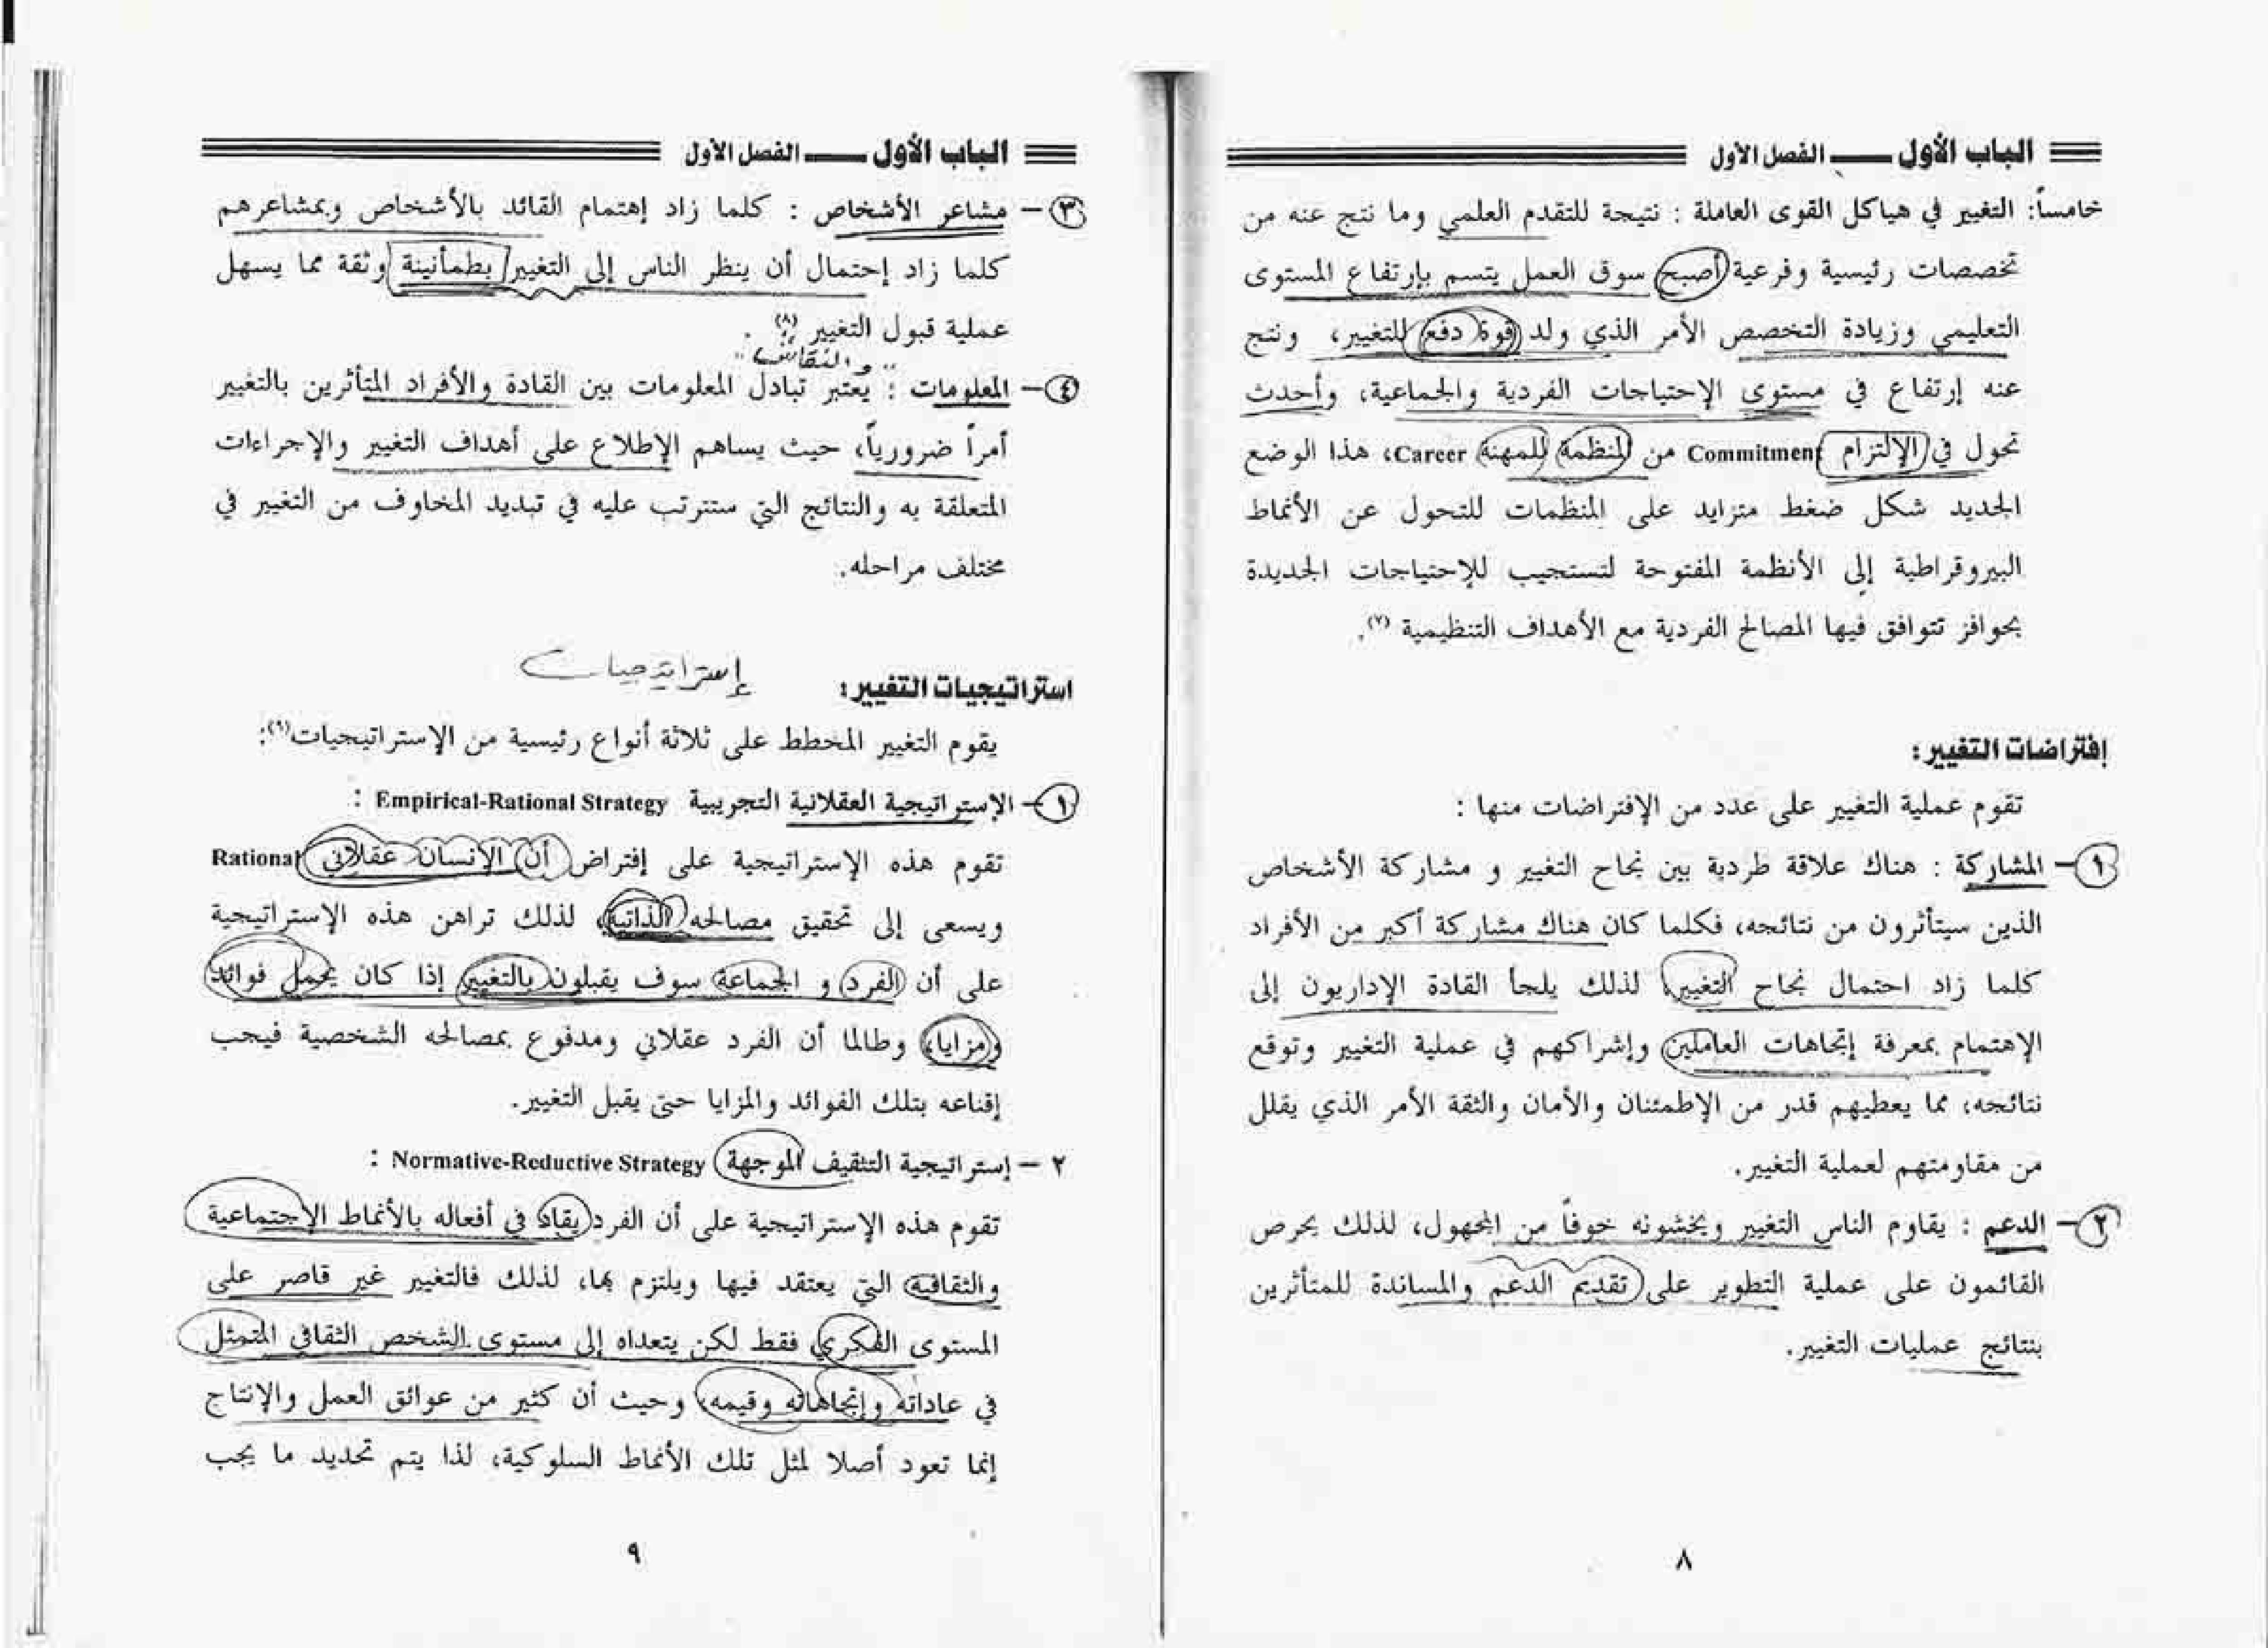 الباب الأول — الفصل الأول
خامساً: التغيير في هياكل القوى العاملة : نتيجة للتقدم العلمي وما نتج عنه من
تخصصات رئيسية وفرعية أصبح سوق العمل يتسم بإرتفاع المستوى
التعليمي وزيادة التخصص الأمر الذي ولد قوة دفع للتغيير، ونتج
عنه إرتفاع في مستوى الإحتياجات الفردية والجماعية، وأحدث
تحول في الإلتزام Commitment من المنظمة للمهنة Career، هذا الوضع
الجديد شكل ضغط متزايد على المنظمات للتحول عن الأنماط
البيروقراطية إلى الأنظمة المفتوحة لتستجيب للإحتياجات الجديدة
بحوافز تتوافق فيها المصالح الفردية مع الأهداف التنظيمية (٧).
إفتراضات التغيير:
تقوم عملية التغيير على عدد من الإفتراضات منها :
١- المشاركة : هناك علاقة طردية بين نجاح التغيير و مشاركة الأشخاص
الذين سيتأثرون من نتائجه، فكلما كان هناك مشاركة أكبر من الأفراد
كلما زاد احتمال نجاح التغيير، لذلك يلجأ القادة الإداريون إلى
الإهتمام بمعرفة إتجاهات العاملين وإشراكهم في عملية التغيير وتوقع
نتائجه، مما يعطيهم قدر من الإطمئنان والأمان والثقة الأمر الذي يقلل
من مقاومتهم لعملية التغيير.
٢- الدعم : يقاوم الناس التغيير ويخشونه خوفاً من المجهول، لذلك يحرص
القائمون على عملية التطوير على تقديم الدعم والمساندة للمتأثرين
بنتائج عمليات التغيير.
٨
الباب الأول — الفصل الأول
٣- مشاعر الأشخاص : كلما زاد إهتمام القائد بالأشخاص وبمشاعرهم
كلما زاد إحتمال أن ينظر الناس إلى التغيير بطمأنينة وثقة مما يسهل
عملية قبول التغيير (٨) .
"والنقاش"
٤- المعلومات : يعتبر تبادل المعلومات بين القادة والأفراد المتأثرين بالتغيير
أمراً ضرورياً، حيث يساهم الإطلاع على أهداف التغيير والإجراءات
المتعلقة به والنتائج التي ستترتب عليه في تبديد المخاوف من التغيير في
مختلف مراحله.
استراتيجيات التغيير: إستراتيجيات
يقوم التغيير المخطط على ثلاثة أنواع رئيسية من الإستراتيجيات(٩):
١- الإستراتيجية العقلانية التجريبية Empirical-Rational Strategy :
تقوم هذه الإستراتيجية على إفتراض أن الإنسان عقلاني Rational
ويسعى إلى تحقيق مصالحه الذاتية، لذلك تراهن هذه الإستراتيجية
على أن الفرد و الجماعة سوف يقبلون بالتغيير إذا كان يحمل فوائد
ومزايا، وطالما أن الفرد عقلاني ومدفوع بمصالحه الشخصية فيجب
إقناعه بتلك الفوائد والمزايا حتى يقبل التغيير.
٢ – إستراتيجية التثقيف الموجهة Normative-Reductive Strategy :
تقوم هذه الإستراتيجية على أن الفرد يقاد في أفعاله بالأنماط الإجتماعية
والثقافية التي يعتقد فيها ويلتزم بها، لذلك فالتغيير غير قاصر على
المستوى الفكري فقط لكن يتعداه إلى مستوى الشخص الثقافي المتمثل
في عاداته وإتجاهاته وقيمه، وحيث أن كثير من عوائق العمل والإنتاج
إنما تعود أصلا لمثل تلك الأنماط السلوكية، لذا يتم تحديد ما يجب
٩